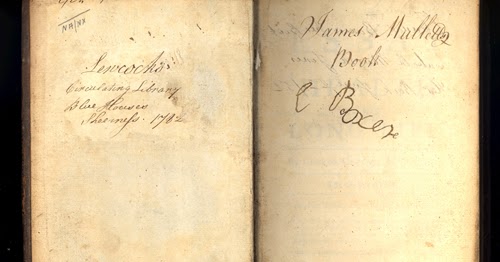 NA/NX
Lewcock's
Circulating Library
Blue Houses
Sheerness. 1782
James
Book
C Boxer